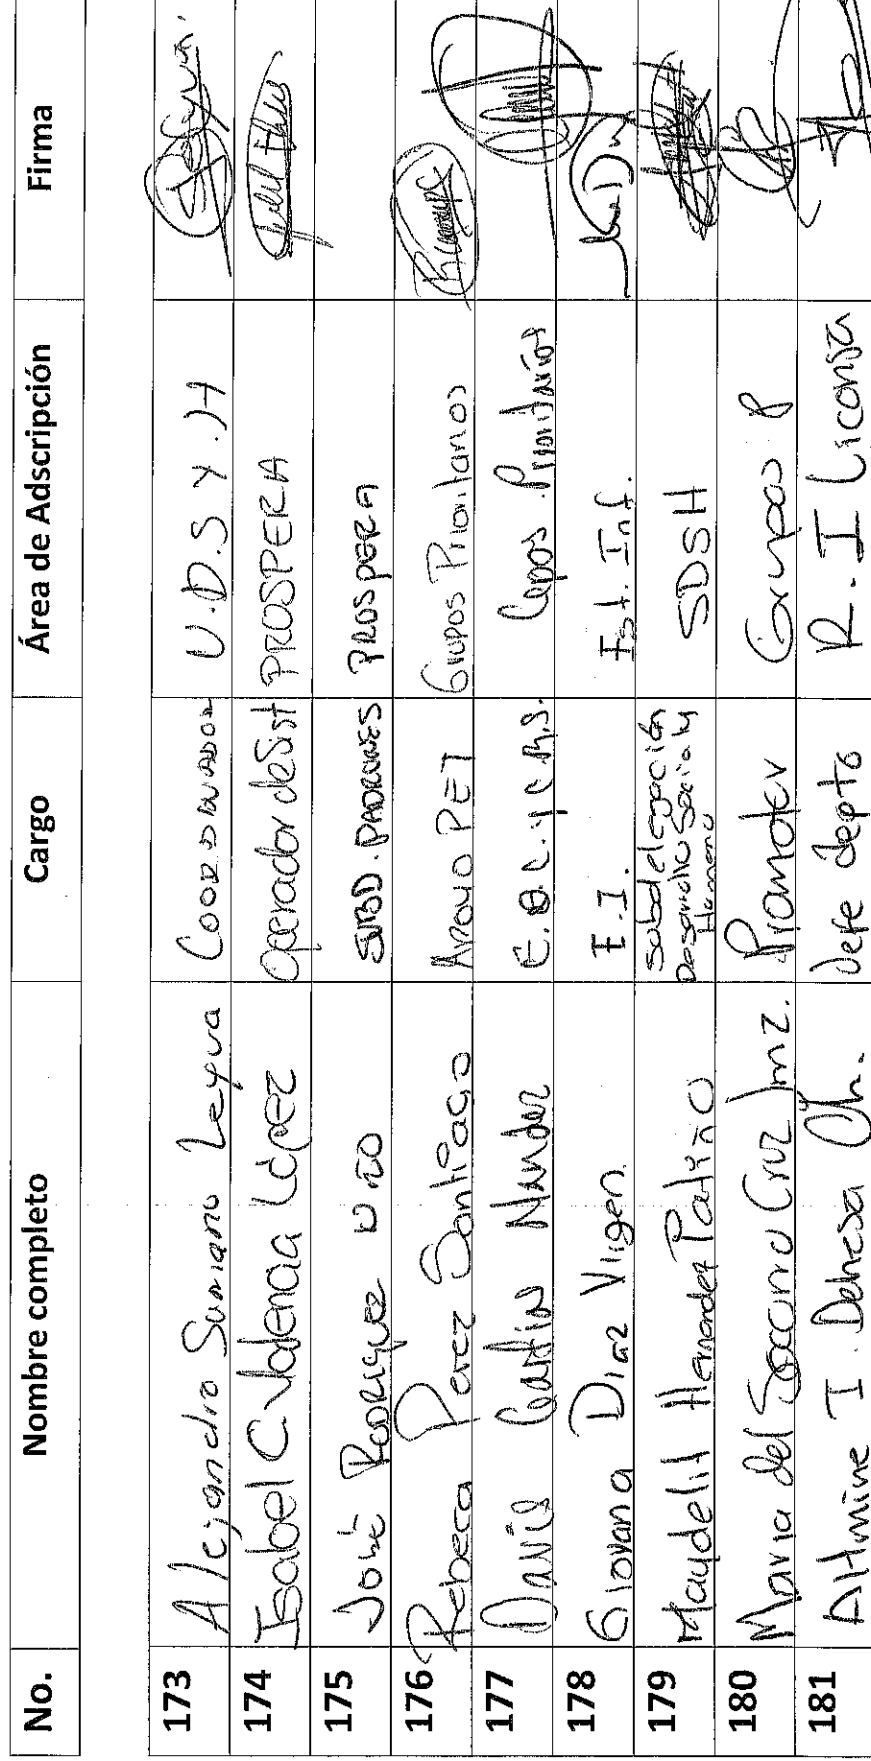 No. Nombre completo Cargo Área de Adscripción Firma
173 Alejandro Sumano Leyva Coordinador U.D.S y.H
174 Isabel C. Valencia López Operador de Sist PROSPERA
175 José Rodriguez SUBD. PADRONES PROSPERA
176 Rebeca Perez Santiago Apoyo PET Grupos Prioritarios
177 David Mendez Gpos. Prioritarios
178 Giovana Diaz Virgen. E.I. Est. Inf.
179 Maydelit Hernandez Patiño Subdelegación Desarrollo Social y Humano SDSH
180 Maria del Socorro Cruz Jmz. Promotor Grupos P
181 I. Dehesa Ch. Jefe depto R. I Liconsa